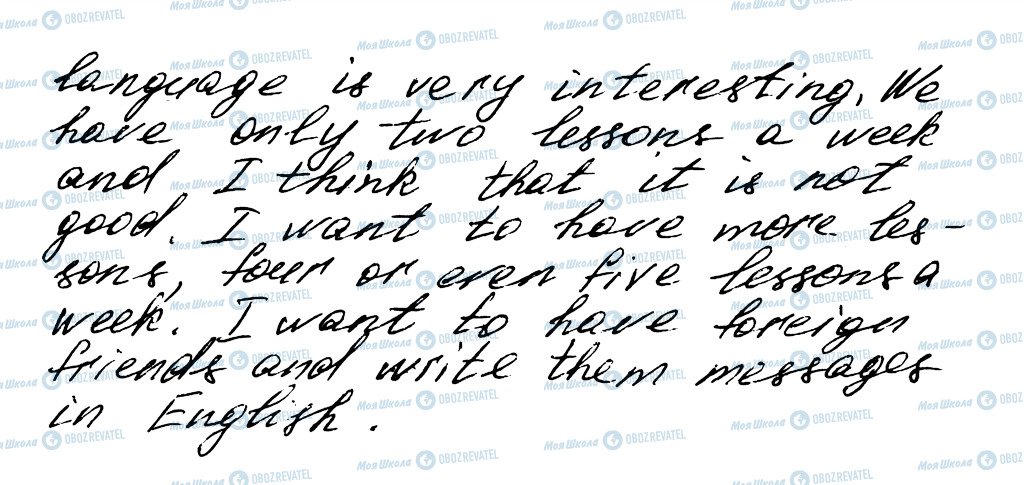 language is very interesting. We
have only two lessons a week
and I think that it is not
good. I want to have more les-
sons, four or even five lessons a
week. I want to have foreign
friends and write them messages
in English.